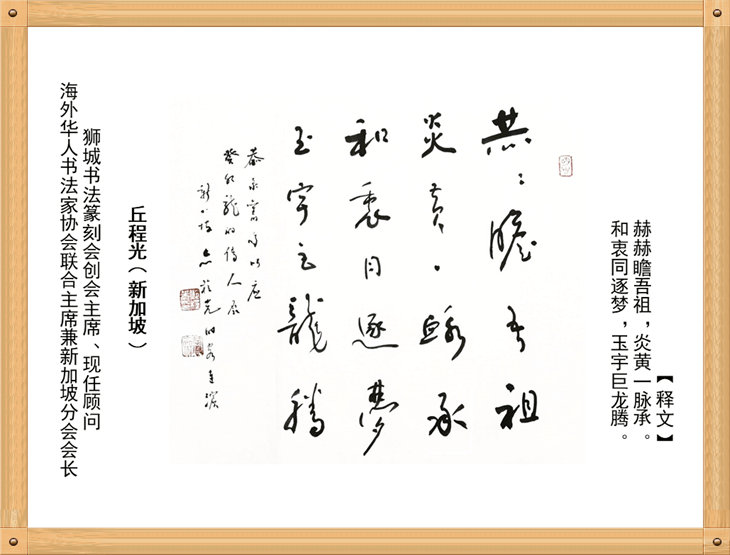 【释文】
赫赫瞻吾祖，炎黄一脉承。
和衷同逐梦，玉宇巨龙腾。
赫〻瞻吾祖
炎黄一脉承
和衷同逐夢
玉宇巨龍騰
癸卯龍的傳人展
丘程光（新加坡）
狮城书法篆刻会创会主席、现任顾问
海外华人书法家协会联合主席兼新加坡分会会长